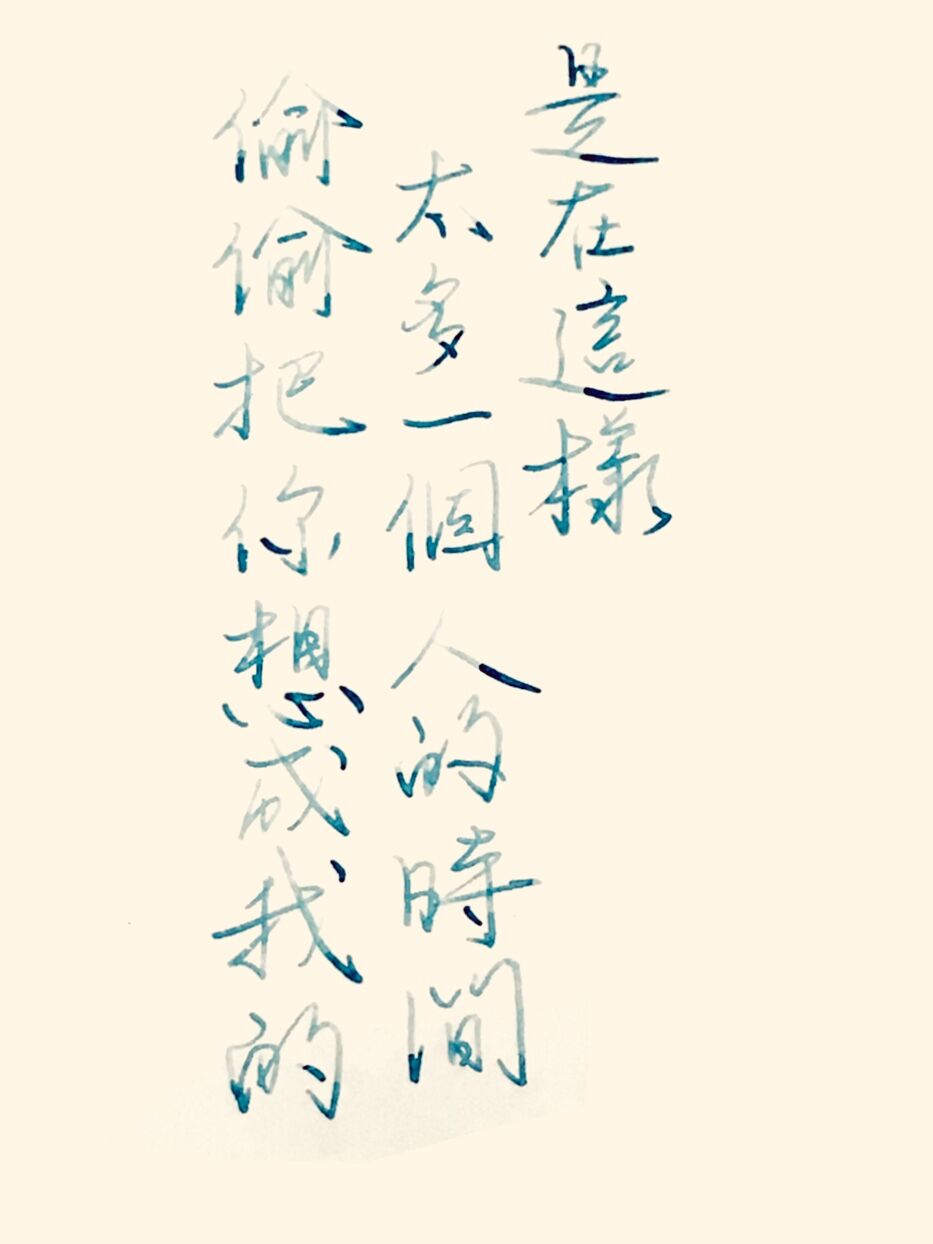 是在這樣
太多一個人的時間
偷偷把你想成我的